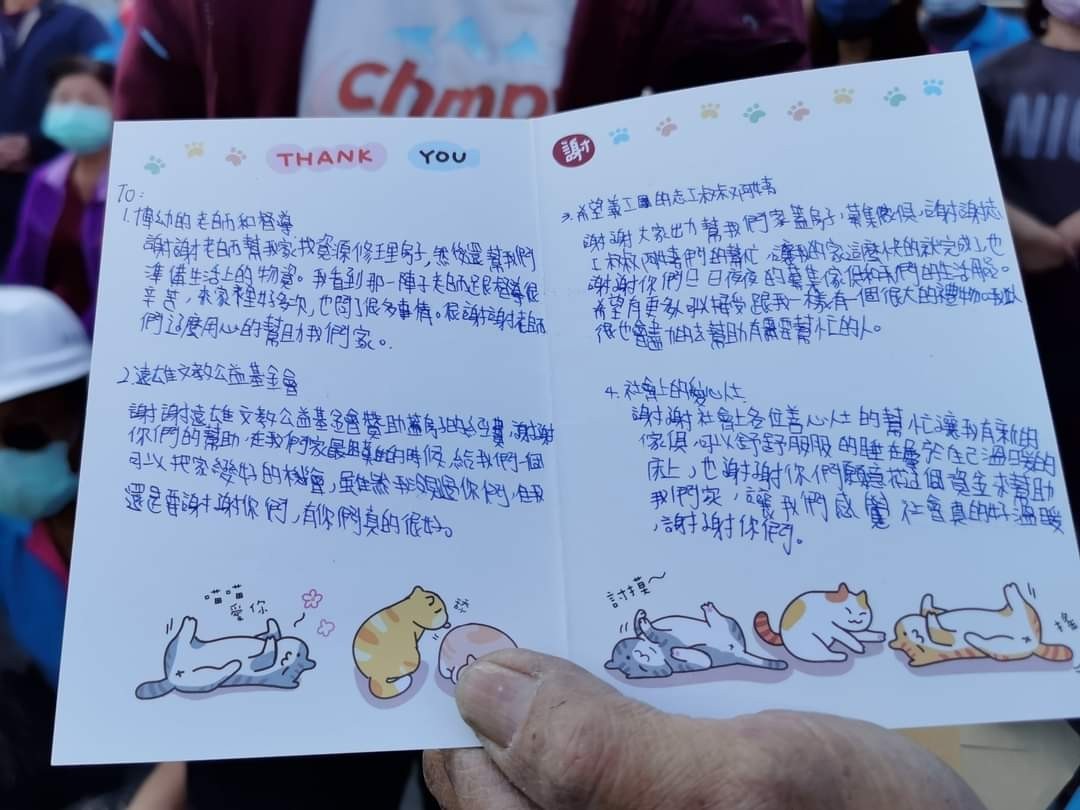 chmp
NIC
THANK YOU
謝
TO:
1. 博幼的老師和督導
謝謝老師幫我家找資原修理房子,然後還幫我們
準備生活上的物資。我看到那一陣子老師跟督導很
辛苦,來家裡好多次,也問了很多事情。很謝謝老師
們這麼用心的幫助我們家。
2. 遠雄文教公益基金會
謝謝遠雄文教公益基金會贊助蓋房子的經費,謝謝
你們的幫助,在我們家最困難的時候,給我們一個
可以把家變好的機會,雖然我沒見過你們,但我
還是要謝謝你們,有你們真的很好。
3. 希望義工團的志工叔叔阿姨
謝謝大家出力幫我們家蓋房子,募集傢俱,謝謝志
工叔叔阿姨們的幫忙,讓我的家這麼快的就完成了,也
謝謝你們日日夜夜的募集傢俱和我們的生活用品。
希望有更多
跟我一樣有一個很大的禮物
去幫助有需要幫忙的人。
4. 社會上的愛心人士
謝謝社會上各位善心人士的幫忙讓我有新的
傢俱,可以舒舒服服的睡在屬於自己溫暖的
床上,也謝謝你們願意花這個資金來幫助
我們家,讓我們感覺社會真的好溫暖
,謝謝你們。
喵喵
愛你
討摸~